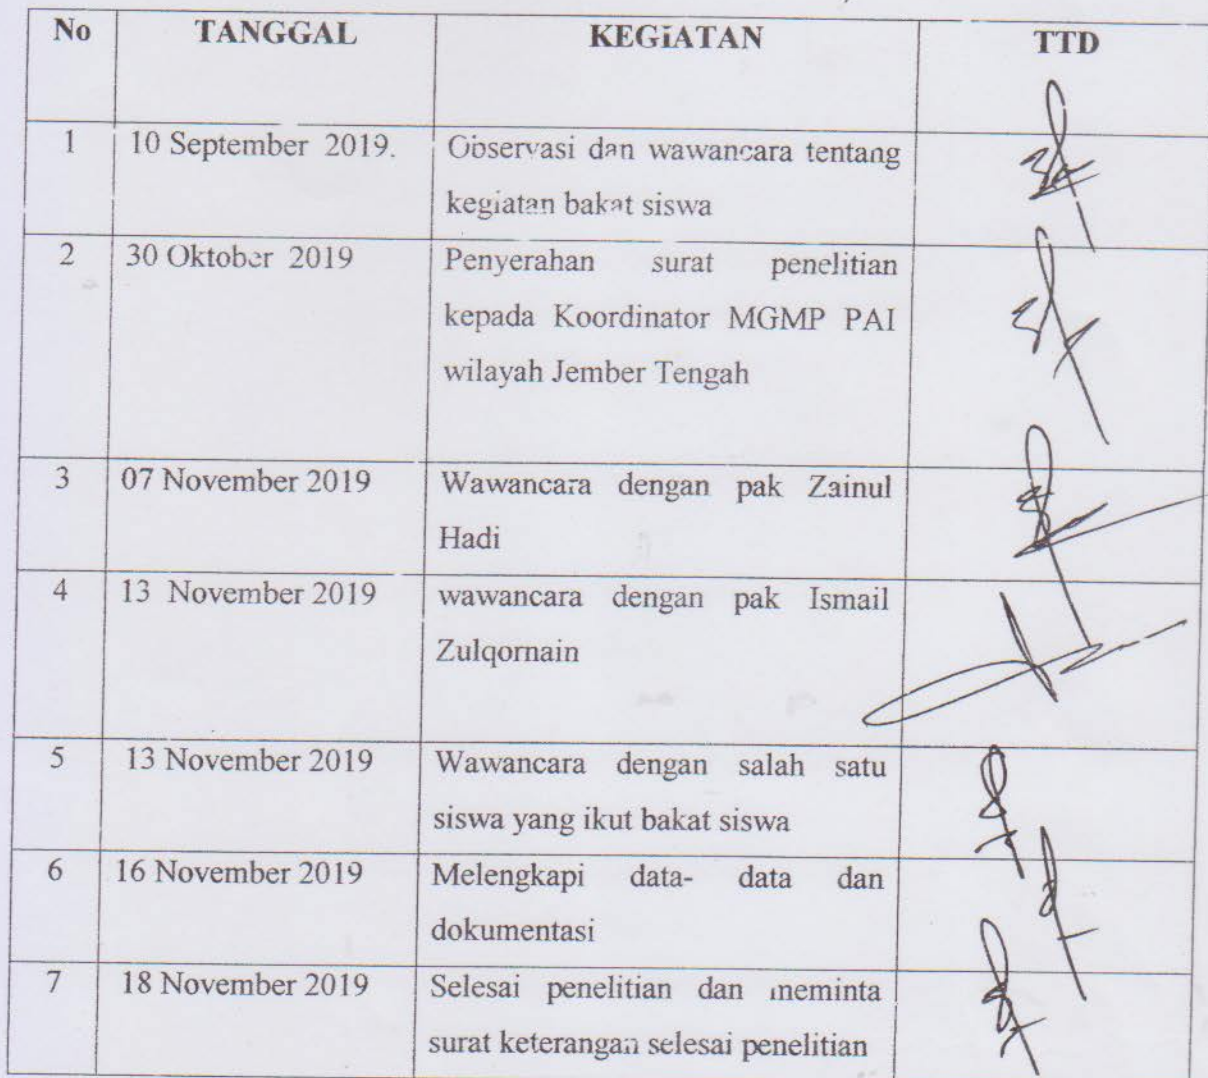 No TANGGAL KEGIATAN TTD
1 10 September 2019. Observasi dan wawancara tentang
kegiatan bakat siswa
2 30 Oktober 2019 Penyerahan surat penelitian
kepada Koordinator MGMP PAI
wilayah Jember Tengah
3 07 November 2019 Wawancara dengan pak Zainul
Hadi
4 13 November 2019 wawancara dengan pak Ismail
Zulqornain
5 13 November 2019 Wawancara dengan salah satu
siswa yang ikut bakat siswa
6 16 November 2019 Melengkapi data- data dan
dokumentasi
7 18 November 2019 Selesai penelitian dan meminta
surat keterangan selesai penelitian